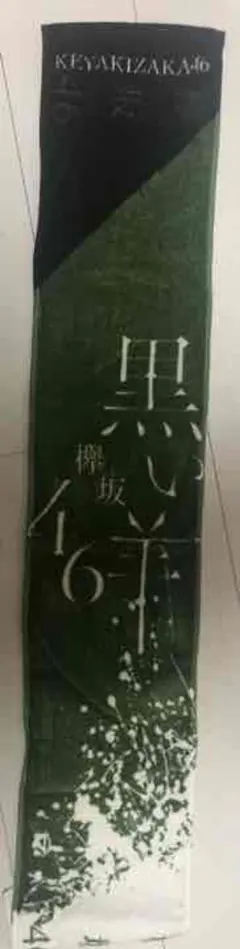 KEYAKIZAKA46
黒い羊
欅坂
46